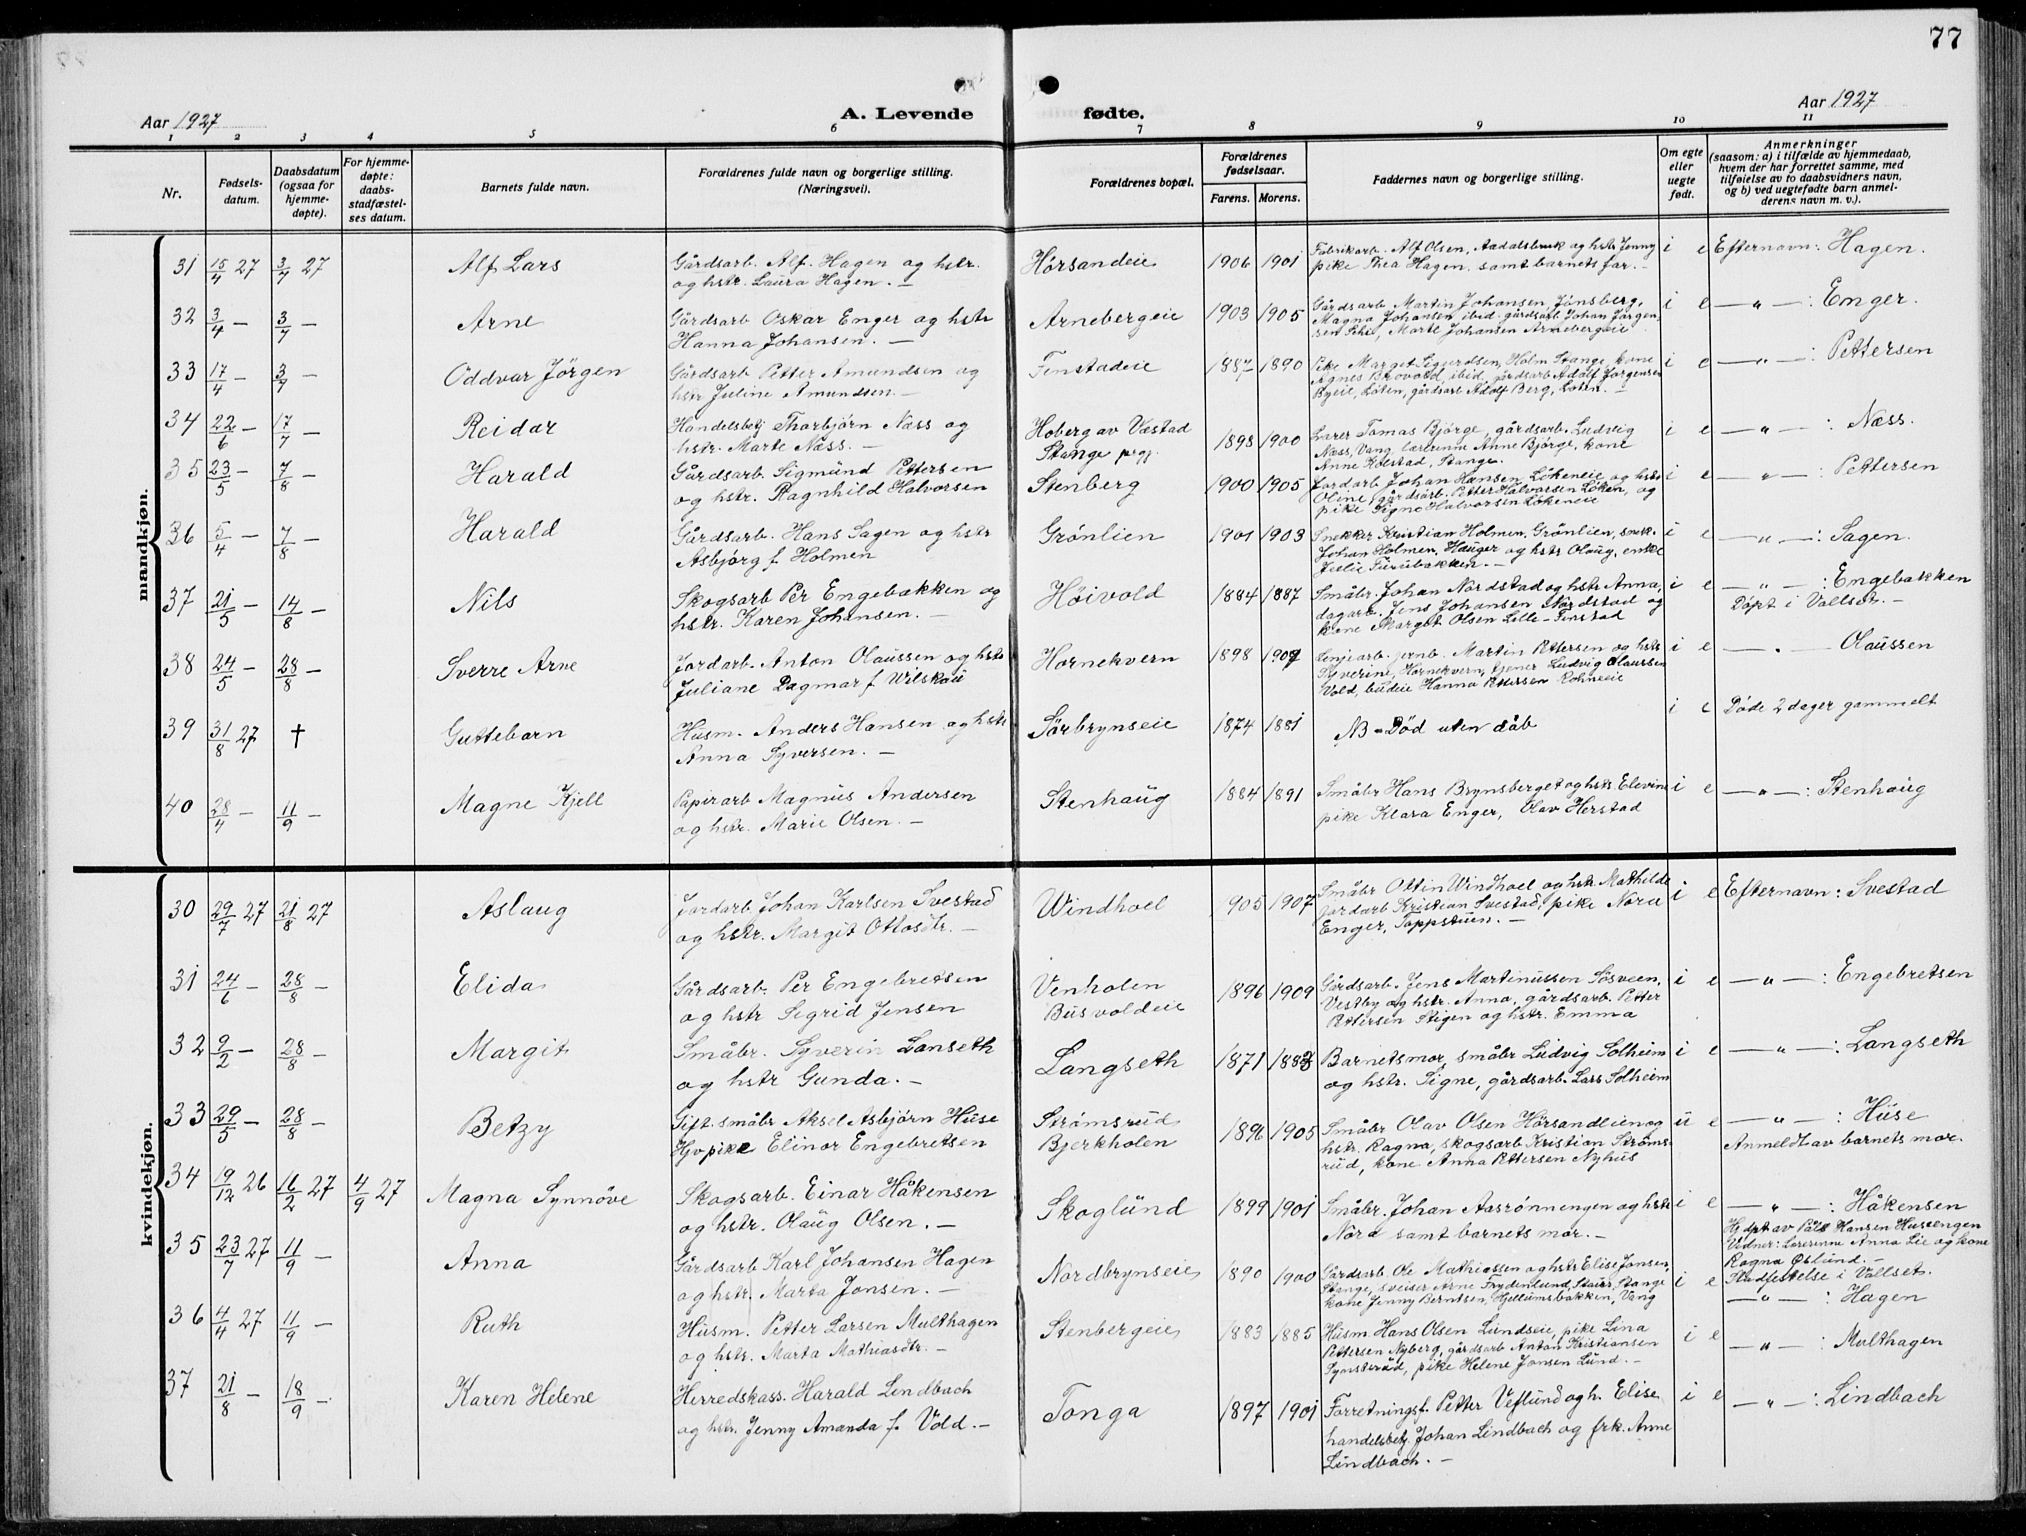 77
Aar 1927
A. Levende fødte.
Aar 1927
1 2 3 4 5 6 7 8 9 10 11
Nr.
Fødsels-
datum.
Daabsdatum
(ogsaa for
hjemme-
døpte).
For hjemme-
døpte:
daabs-
stadfæstel-
ses datum.
Barnets fulde navn.
Forældrenes fulde navn og borgerlige stilling.
(Næringsvei).
Forældrenes bopæl.
Forældrenes
fødselsaar.
Farens. Morens.
Faddernes navn og borgerlige stilling.
Om egte
eller
uegte
født.
Anmerkninger
(saasom: a) i tilfælde av hjemmedaab,
hvem der har forrettet samme, med
tilføielse av to daabsvidners navn,
og b) ved uegtefødte barn anmel-
derens navn m. v.).
mandkjøn.
31 15/4 27 3/7 27 Alf Lars
Gårdsarb. Alf. Hagen og hstr.
og hstr. Laura Hagen. —
Hørsandeie 1906 1901
Fabrikarb. Alf Olsen, Aadalsbruk og hstr Jenny
pike Thea Hagen. samt barnets far. —
i e Efternavn: Hagen.
32 3/4 — 3/7 — Arne
Gårdsarb Oskar Enger og hstr
Hanna Johansen. —
Arnebergeie 1903 1905
Gårdsarb Martin Johansen, Jønsberg,
Magna Johansen ibid. gårdsarb Johan Jørgen-
sen Eke, Marte Johansen Arnebergeie
i e — " — : Enger.
33 17/4 — 3/7 — Oddvar Jörgen
Gårdsarb Petter Amundsen og
hstr Juline Amundsen. —
Finstadeie 1887 1890
Pike Margit Sigurdsen, Holm Stange, kone
Agnes Brovold, ibid, gårdsarb Adolf Jørgensen
Byeie, Løten, gårdsarb Adolf Berg, Løten. —
i e — " — : Pettersen
34 22/6 — 17/7 — Reidar
Handelsbetj Thorbjørn Næss og
hstr. Marte Næss. —
Hoberg av Vestad
Stange pegj.
1898 1900
Lærer Tomas Bjørge, gårdsarb. Ludvig
Næss, Vang, lærerinne Anne Bjørge, kone
Anne Kolstad, Stange.
i e — " — : Næss.
35 23/5 — 7/8 — Harald
Gårdsarb. Sigmund Pettersen
og hstr. Ragnhild Halvorsen
Stenberg 1900 1905
Jordarb Johan Hansen Løkeneie og hstr
Oline, gårdsarb. Petter Halvorsen Løken, og
pike Signe Halvorsen Løkeneie
i e — " — : Pettersen
36 5/4 — 7/8 — Harald
Gårdsarb. Hans Sagen og hstr
Asbjørg f Holmen
Grønlien 1901 1903
Snekker Kristian Holmen, Grønlien, snek.
Johan Holmen, Hauger og hstr Olaug, enke
Julie Furubakken. —
i e — " — : Sagen.
37 21/5 — 14/8 — Nils
Skogsarb Per Engebakken og
hstr. Karen Johansen. —
Høivold 1884 1887
Småbr. Johan Nordstad og hstr Anna,
dagarb. Jens Johansen Nordstad og
kone Margot Olsen Lille-Finstad
i e — " — : Engebakken
Döpt i Vallset. —
38 24/5 — 28/8 — Sverre Arne
Jordarb. Anton Olaussen og hstr
Juliane Dagmar f Wilskou
Hornekvern 1898 1907
Linjearb. jernb. Martin Pettersen og hstr
Syverine, Hornekvern, tjener Ludvig Olaussen
Vold, budeie Hanna Pettersen Rohneeie
i e — " — Olaussen
39 31/8 27 † Guttebarn
Husm. Anders Hansen og hstr
Anna Syversen. —
Sørbrynseie 1874 1881
NB - Död uten dåb
i e Døde 2 dager gammelt
40 28/4 — 11/9 — Magne Kjell
Papirarb Magnus Andersen
og hstr. Marie Olsen. —
Stenhaug 1884 1891
Småbr Hans Brynsberget og hstr. Elevine
pike Klara Enger, Olav Herstad
i e — " — : Stenhaug
kvindekjøn.
30 29/7 27 21/8 27 Aslaug
Jordarb. Johan Karlsen Svestad
og hstr. Margit Ottosdtr. —
Windhoel 1905 1907
Småbr Ottin Windhoel og hstr Mathilde
jordarb Kristian Svestad, pike Nora
Enger, Toppstuen. —
i e Efternavn: Svestad
31 24/6 — 28/8 — Elida
Gårdsarb. Per Engebretsen
og hstr Sigrid Jensen
Venholen
Busvoldeie
1896 1909
Gårdsarb. Jens Martinussen Søsveen,
Vestby og hstr. Anna, gårdsarb. Petter
Pettersen Stigen og hstr. Emma
i e — " — : Engebretsen
32 9/2 — 28/8 — Margit
Småbr. Syverin Lanseth
og hstr Gunda. —
Langseth 1871 1888
Barnets mor, småbr Ludvig Solheim
og hstr. Signe, gårdsarb. Lars Solheim
i e — " — : Langseth
33 29/5 — 28/8 — Betzy
Gift småbr Aksel Asbjørn Huse
Hv pike Elinor Engebretsen
Strømsrud
Bjerkholen
1896 1905
Småbr Olav Olsen Hørsandlien og
hstr. Ragna, skogsarb Kristian Strøms-
rud, kone Anna Pettersen Nyhus
u e — " — : Huse
Anmeldt av barnets mor.
34 19/12 26 16/2 27 4/9 27 Magna Synnöve
Skogsarb. Einar Håkensen
og hstr. Olaug Olsen. —
Skoglund 1899 1901
Småbr. Johan Aasrønningen og hstr
Nora samt barnets mor. —
i e — " — : Håkensen
Hj dpt av Påls Hansen Husengen
Vidner: Lærerinne Anna Lie og kone
Ragna Østlund. —
Stadfestelse i Vallset.
35 23/7 27 11/9 — Anna
Gårdsarb Karl Johansen Hagen
og hstr. Marta Jonsen. —
Nordbrynseie 1890 1900
Gårdsarb. Ole Mathiassen og hstr Elise Jonsen,
Stange, sveiser Arne Frydenlund, Staur, Stange
kone Jenny Berntsen, Hjellumsbakken, Vang
i e — " — : Hagen
36 4/4 27 11/9 — Ruth
Husm. Petter Larsen Multhagen
og hstr. Marta Mathiasdtr. —
Stenbergeie 1883 1885
Husm. Hans Olsen Lundseie, pike Lina
Pettersen Nyberg, gårdsarb Anton Kristiansen
Synsterud, pike Helene Jonsen Lund. —
i e — " — : Multhagen
37 21/8 — 18/9 — Karen Helene
Herredskass. Harald Lindbach
og hstr. Jenny Amanda f. Vold. —
Tonga 1897 1901
Forretningsf. Petter Veflund og h. Elise
handelsbetj. Johan Lindbach og frk. Anne
Lindbach. —
i e — " — : Lindbach